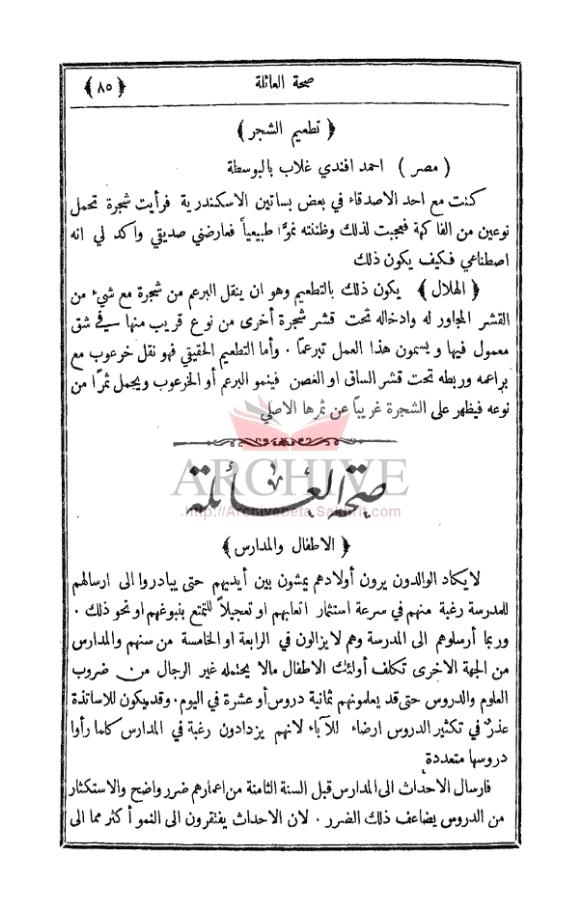 صحة العائلة
﴿ ٨٥ ﴾
﴿ تطعيم الشجر ﴾
( مصر ) احمد افندي غلاب بالبوسطة
كنت مع احد الاصدقاء في بعض بساتين الاسكندرية فرأيت شجرة تحمل
نوعين من الفاكهة فعجبت لذلك وظننته نموًّا طبيعياً فعارضني صديقي واكد لي انه
اصطناعي فكيف يكون ذلك
﴿ الهلال ﴾ يكون ذلك بالتطعيم وهو ان ينقل البرعم من شجرة مع شيء من
القشر المجاور له وادخاله تحت قشر شجرة أخرى من نوع قريب منها في شق
معمول فيها ويسمون هذا العمل تبرعماً . وأما التطعيم الحقيقي فهو نقل خرعوب مع
براعمه وربطه تحت قشر الساق او الغصن فينمو البرعم أو الخرعوب ويحمل ثمرًا من
نوعه فيظهر على الشجرة غريباً عن ثمرها الاصلي
ARCHIVE
صحة العائلة
http://Archivebeta.Sakhrit.com
﴿ الاطفال والمدارس ﴾
لا يكاد الوالدون يرون أولادهم يمشون بين أيديهم حتى يبادروا الى ارسالهم
للمدرسة رغبة منهم في سرعة استثمار اتعابهم او تعجيلاً للتمتع بنبوغهم او نحو ذلك .
وربما أرسلوهم الى المدرسة وهم لا يزالون في الرابعة او الخامسة من سنهم والمدارس
من الجهة الاخرى تكلف أولئك الاطفال مالا يحتمله غير الرجال من ضروب
العلوم والدروس حتى قد يعلمونهم ثمانية دروس أو عشرة في اليوم . وقد يكون للاساتذة
عذرٌ في تكثير الدروس ارضاء للآباء لانهم يزدادون رغبة في المدارس كلما رأوا
دروسها متعددة
فارسال الاحداث الى المدارس قبل السنة الثامنة من اعمارهم ضرر واضح والاستكثار
من الدروس يضاعف ذلك الضرر . لان الاحداث يفتقرون الى النمو أكثر مما الى